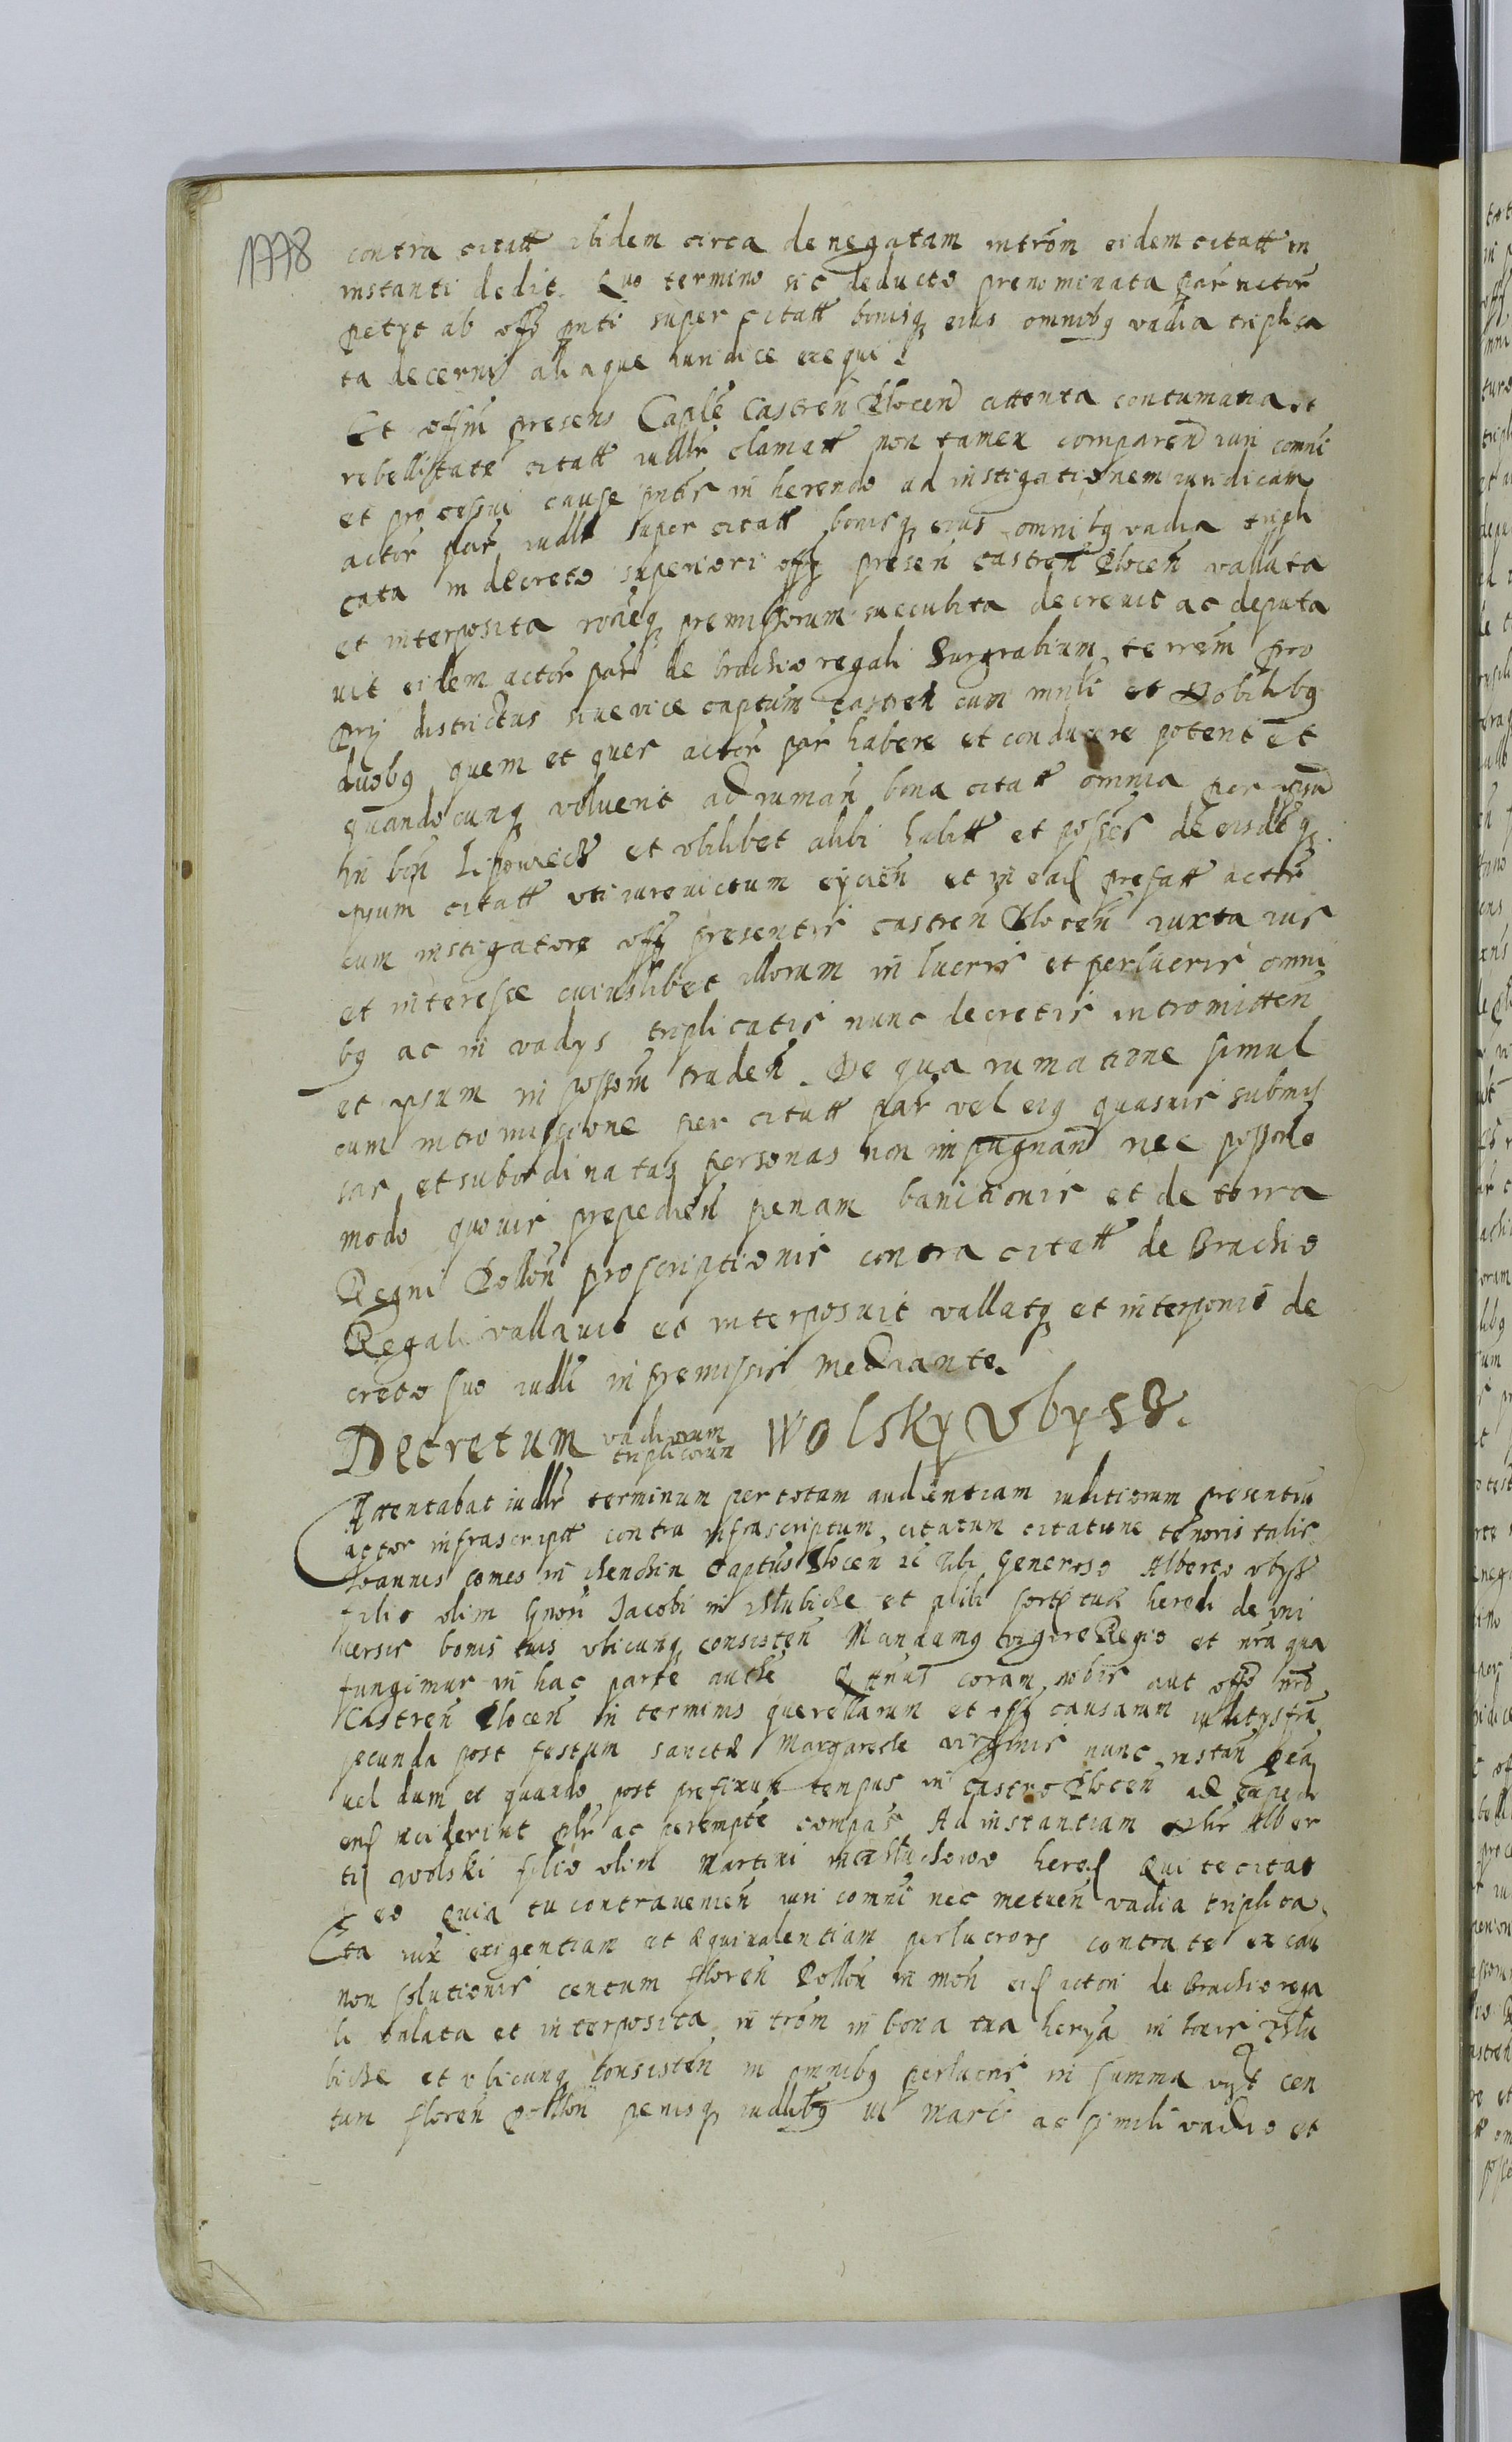 1778
contra citatt ibidem circa denegatam intrōm eidem citatt in
instanti dedit. Quo termino sic deducto prenominata par actor
petyt ab offo pnti super citatt bonisq eius omnibq vadia triplica
ta decerni aliaque iuridice exequi.
Et offm presens Caple Castren Plocen attenta contumatia et
rebellitate citatt iudlr clamatt non tamen comparen iuri comni
et processui cause pntis in herendo ad instigationem iuridicam
actor par iudlr super citatt bonisq eius omnibq vadia tripli
cata in decreto superiori offy presen castren Plocen vallata
et interposita roneq premissorum succubita decrevit ac deputa
vit eidem actor par de brachio regali Surgrabium terrem pro
pry districtus sive vice captum castren cum mnli et Nobilibq
duobq quem et ques actor par habere et conducere potent et
quandocunq voluerit ad ruman bona citatt omnia per ipsu
in bon Lipowiecz et ubilibet alibi habitt et posses de eisdeq
ipsum citatt uti iure victum eycien et in ead prefatt actore
cum instigatore offy presentis castren Plocen iuxta ius
et interesse cuiuslibet illorum in lucris et perlucris omni
bq ac in vadys triplicatis nunc decretis intromitten
et ipsum in possom traden. De qua rumatione simul
cum intromissione per citatt par vel eiq quasvis submis
sas et subordinatas personas non impugnan nec possone
modo quovis prepedien penam banitionis et de terra
Regni Pollon proscriptionis contra citatt de Brachio
Regali vallavit et interposuit vallatq et interponit de
creto suo iudli in premissis mediante.
Decretum vadiorum triplicorum Wolsky Ubysz.
Attentabat iudlr terminum per totam audientiam iuditiorum presentiu
actor infrascriptt contra infrascriptum citatum citatione tenoris talis
Joannes comes in Chenchin Captus Plocen ic Tibi Generoso Alberto Ubysz
filio olim Gnosi Jacobi in et alibi sorte tue heredi de uni
versis bonis tuis ubicunq consisten Mandamq vigore Regio et nra qua
fungimur in hac parte authe Qtnus coram nobis aut offo nro
Castren Plocen in terminis querellarum et offy causarum iuditys fra
secunda post festum sancte Margarethe virginis nunc instan pea
vel dum et quando post prefixum tempus in castro Plocen ad expedi
end inciderint plr ac perempte compas Ad instantiam Alber
ti Wolski filio olim Martini in hered Qui te citat
Eo Quia tu contravenien iuri comni nec metuen vadia triplica
ta iux exigentiam et equivalentiam perlucrorq contra te ex cau
non solutionis centum floren Pollon in mon eid actori de brachio rega
li valata et interposita in trom in bona tua herya in bonis
et ubicunq consisten in omnibq perlucris in summa vizt cen
tum floren Pollon penisq iudlibq iii marc ac simili vadio et